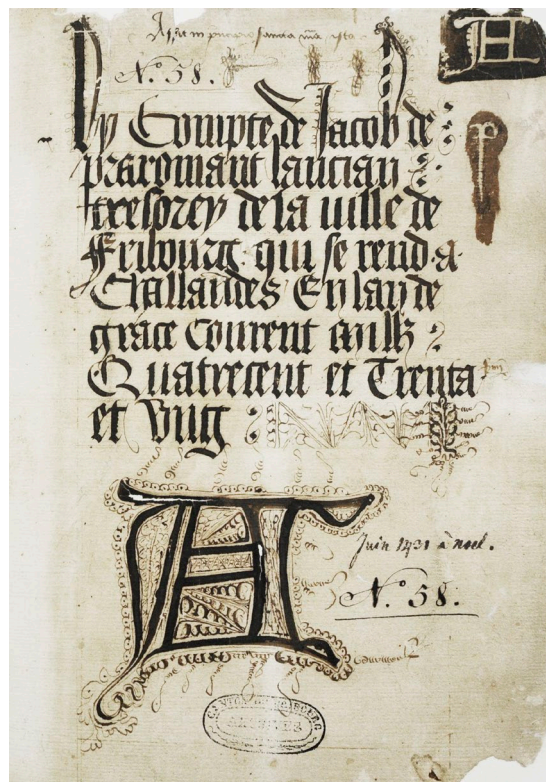 N.º 58.
Ly Compte de Jacob de
praromant lancian
tresorey de la ville de
Fribourg qui se rend a
Challandes En lan de
grace courent milz
Quatrecent et Trenta
et vng
Juin 1431 à noel.
N.º 58.